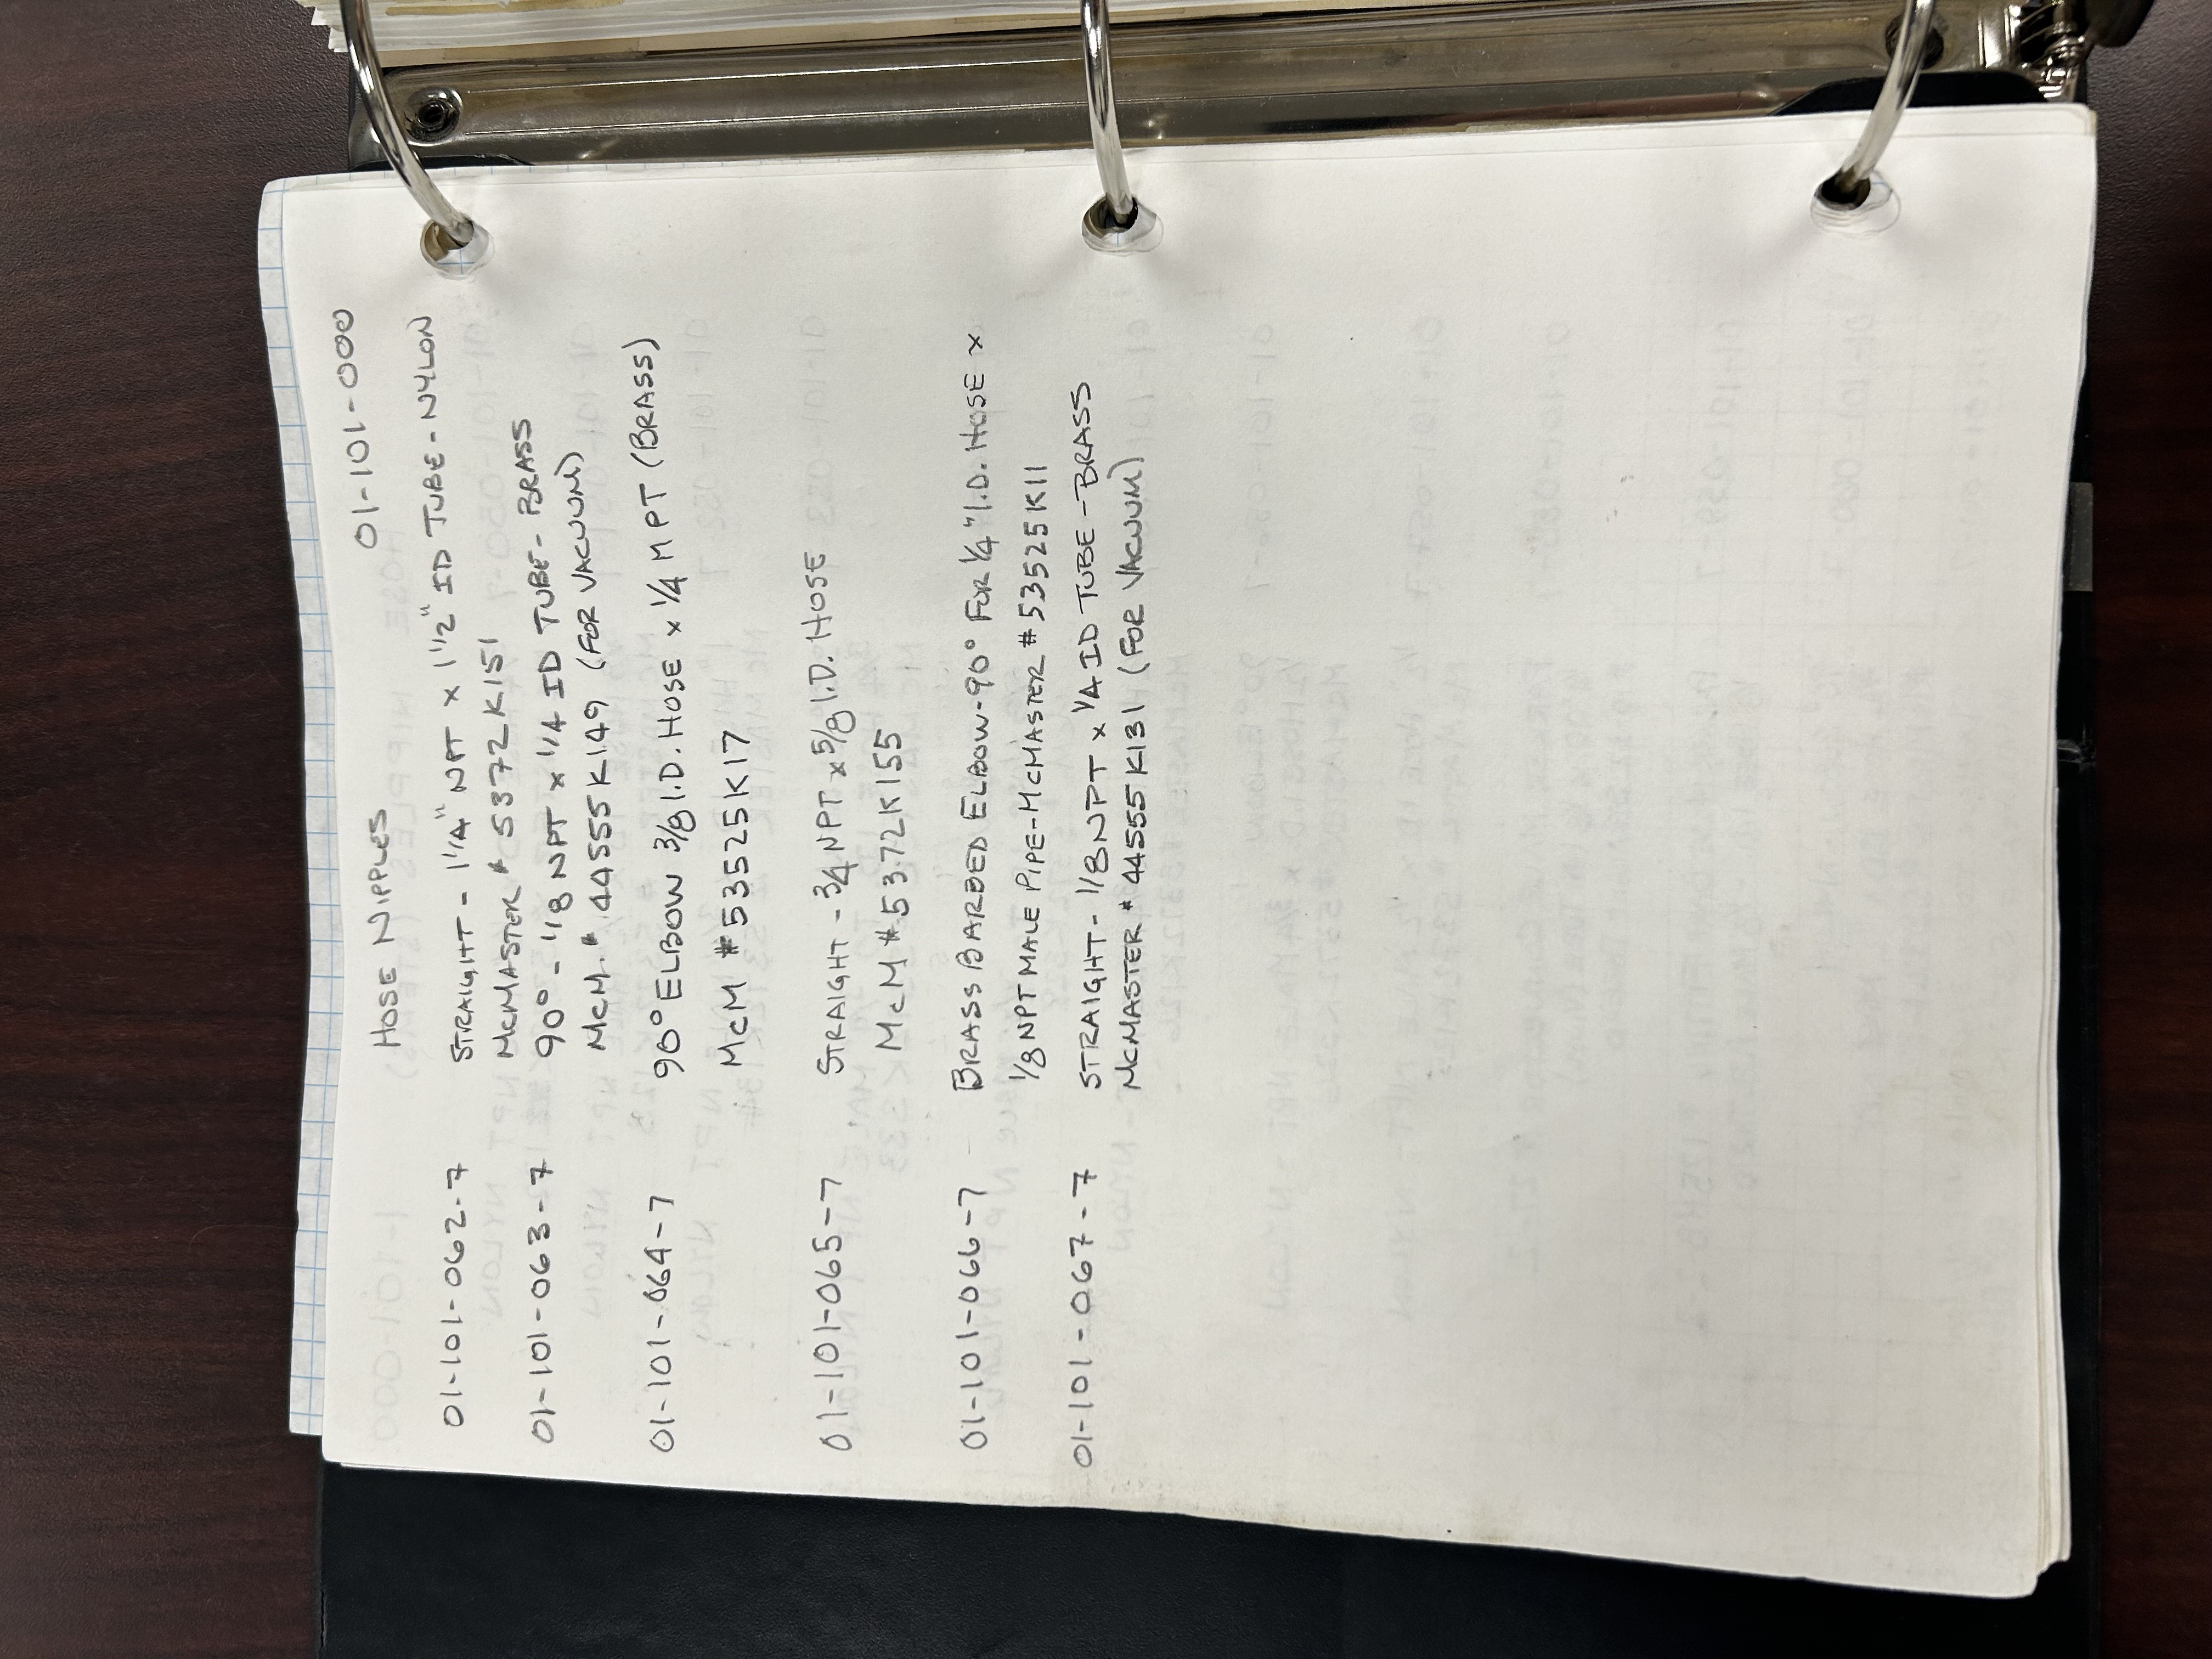 HOSE NIPPLES 01-101-000
01-101-062-7 STRAIGHT - 1 1/4" NPT x 1 1/2" ID TUBE - NYLON
MCMASTER # 5372K151
01-101-063-7 90° - 1/8 NPT x 1/4 ID TUBE - BRASS
MCM. # 44555K149 (FOR VACUUM)
01-101-064-7 90° ELBOW 3/8 I.D. HOSE x 1/4 MPT (BRASS)
McM #53525K17
01-101-065-7 STRAIGHT - 3/4 NPT x 5/8 I.D. HOSE
McM #5372K155
01-101-066-7 BRASS BARBED ELBOW-90° FOR 1/4" I.D. HOSE x
1/8 NPT MALE PIPE-MCMASTER #53525K11
01-101-067-7 STRAIGHT - 1/8 NPT x 1/4 ID TUBE - BRASS
MCMASTER # 44555K131 (FOR VACUUM)